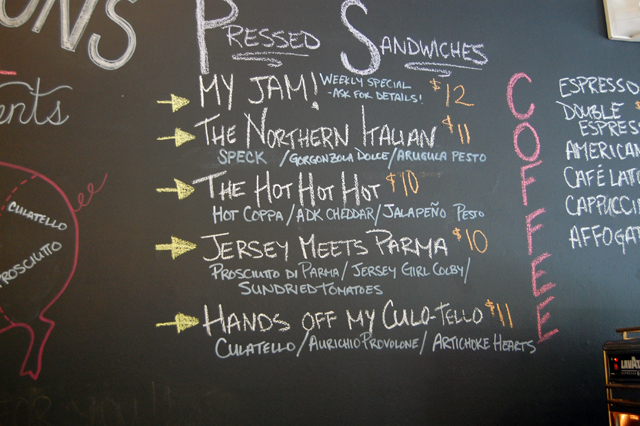 ONS
ents
CULATELLO
PROSCIUTTO
PRESSED SANDWICHES
MY JAM! WEEKLY SPECIAL $12
-ASK FOR DETAILS!
THE NORTHERN ITALIAN $11
SPECK / GORGONZOLA DOLCE / ARUGULA PESTO
THE HOT HOT HOT $10
HOT COPPA / ADK CHEDDAR / JALAPEÑO PESTO
JERSEY MEETS PARMA $10
PROSCIUTTO DI PARMA / JERSEY GIRL COLBY /
SUNDRIED TOMATOES
HANDS OFF MY CULO-TELLO $11
CULATELLO / AURICHIO PROVOLONE / ARTICHOKE HEARTS
COFFEE
ESPRESSO
DOUBLE $
ESPRESS
AMERICAN
CAFÉ LAT
CAPPUCCIN
AFFOGAT
LAVAZZA